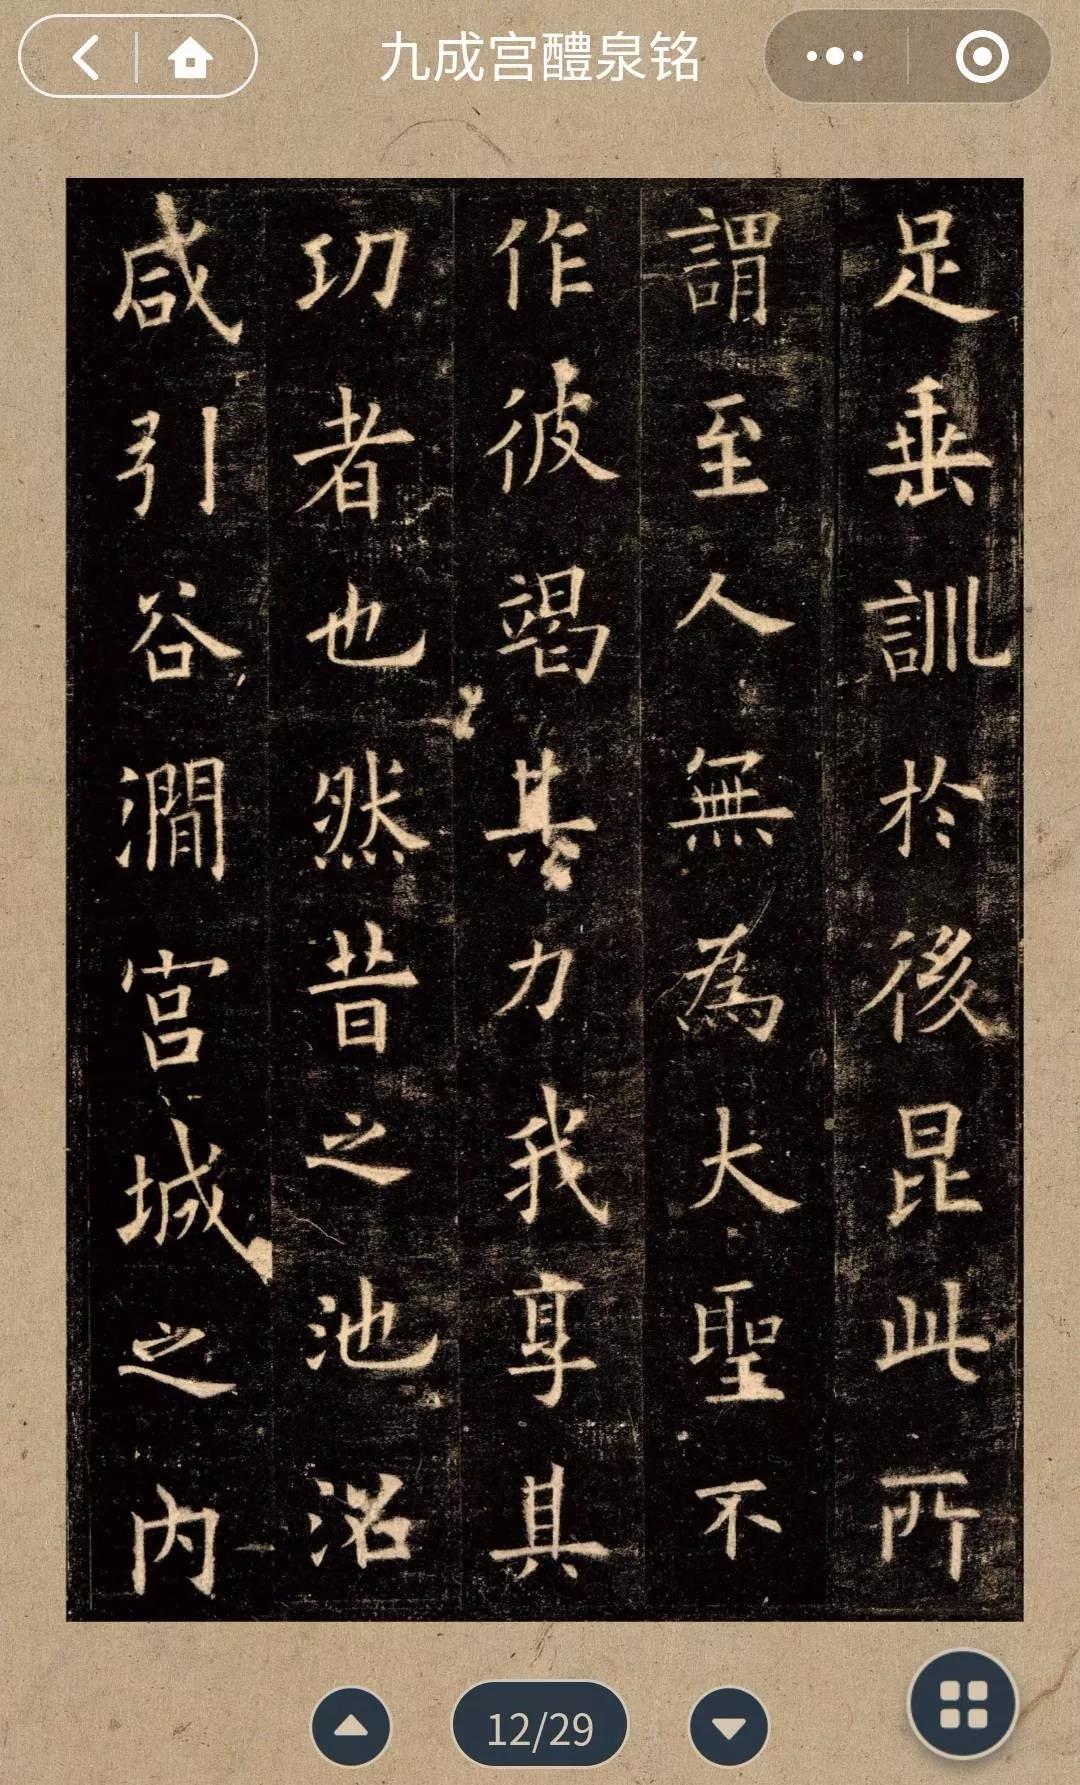 九成宫醴泉铭
足垂訓於後昆此所
謂至人無為大聖不
作彼竭其力我享其
功者也然昔之池沼
咸引谷澗宮城之內
12/29